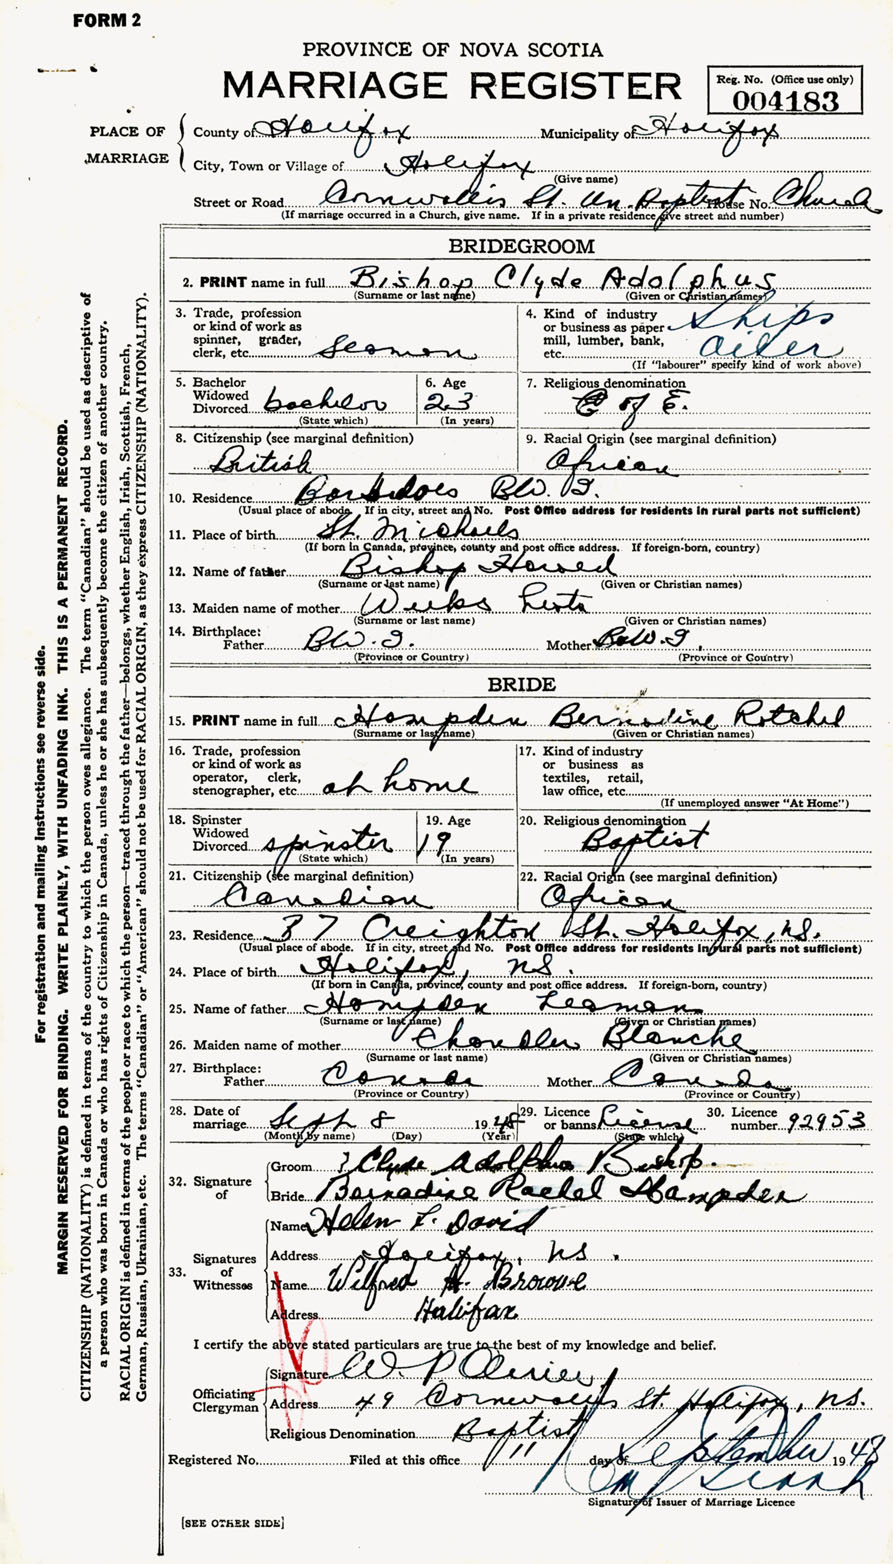 FORM 2
PROVINCE OF NOVA SCOTIA
MARRIAGE REGISTER
Reg. No. (Office use only)
004183
PLACE OF MARRIAGE
County of Halifax Municipality of Halifax
City, Town or Village of Halifax
(Give name)
Street or Road Cornwallis St. Un. Baptist House No. Church
(If marriage occurred in a Church, give name. If in a private residence give street and number)
BRIDEGROOM
2. PRINT name in full Bishop Clyde Adolphus
(Surname or last name) (Given or Christian names)
3. Trade, profession or kind of work as spinner, grader, clerk, etc. Seaman
4. Kind of industry or business as paper mill, lumber, bank, etc. Ships oiler
(If "labourer" specify kind of work above)
5. Bachelor Widowed Divorced bachelor
(State which)
6. Age 23
(In years)
7. Religious denomination C of E.
8. Citizenship (see marginal definition)
British
9. Racial Origin (see marginal definition)
African
10. Residence Barbadoes B.W.I.
(Usual place of abode. If in city, street and No. Post Office address for residents in rural parts not sufficient)
11. Place of birth St. Michaels
(If born in Canada, province, county and post office address. If foreign-born, country)
12. Name of father Bishop
(Surname or last name) (Given or Christian names)
13. Maiden name of mother Weeks
(Surname or last name) (Given or Christian names)
14. Birthplace:
Father B.W.I. Mother B.W.I.
(Province or Country) (Province or Country)
BRIDE
15. PRINT name in full Hampden Bernadine Ratchel
(Surname or last name) (Given or Christian names)
16. Trade, profession or kind of work as operator, clerk, stenographer, etc. at home
17. Kind of industry or business as textiles, retail, law office, etc.
(If unemployed answer "At Home")
18. Spinster Widowed Divorced spinster
(State which)
19. Age 19
(In years)
20. Religious denomination
Baptist
21. Citizenship (see marginal definition)
Canadian
22. Racial Origin (see marginal definition)
African
23. Residence 37 Creighton St. Halifax, N.S.
(Usual place of abode. If in city, street and No. Post Office address for residents in rural parts not sufficient)
24. Place of birth Halifax, N.S.
(If born in Canada, province, county and post office address. If foreign-born, country)
25. Name of father Hampden Leaman
(Surname or last name) (Given or Christian names)
26. Maiden name of mother Chandler Blanche
(Surname or last name) (Given or Christian names)
27. Birthplace:
Father Canada Mother Canada
(Province or Country) (Province or Country)
28. Date of marriage Sept 8 1948
(Month by name) (Day) (Year)
29. Licence or banns License
(State which)
30. Licence number 92953
32. Signature of
Groom Clyde Adolphus Bishop.
Bride Bernadine Rachel Hampden
33. Signatures of Witnesses
Name Helen F. David
Address Halifax, N.S.
Name Wilfred A. Browne
Address Halifax
I certify the above stated particulars are true to the best of my knowledge and belief.
Officiating Clergyman
Signature W. P. Oliver
Address 49 Cornwallis St. Halifax, N.S.
Religious Denomination Baptist
Registered No. Filed at this office 11 day of September 1948
Signature of Issuer of Marriage Licence
[SEE OTHER SIDE]
For registration and mailing instructions see reverse side.
MARGIN RESERVED FOR BINDING. WRITE PLAINLY, WITH UNFADING INK. THIS IS A PERMANENT RECORD.
CITIZENSHIP (NATIONALITY) is defined in terms of the country to which the person owes allegiance. The term "Canadian" should be used as descriptive of
a person who was born in Canada or who has rights of Citizenship in Canada, unless he or she has subsequently become the citizen of another country.
RACIAL ORIGIN is defined in terms of the people or race to which the person—traced through the father—belongs, whether English, Irish, Scottish, French,
German, Russian, Ukrainian, etc. The terms "Canadian" or "American" should not be used for RACIAL ORIGIN, as they express CITIZENSHIP (NATIONALITY).